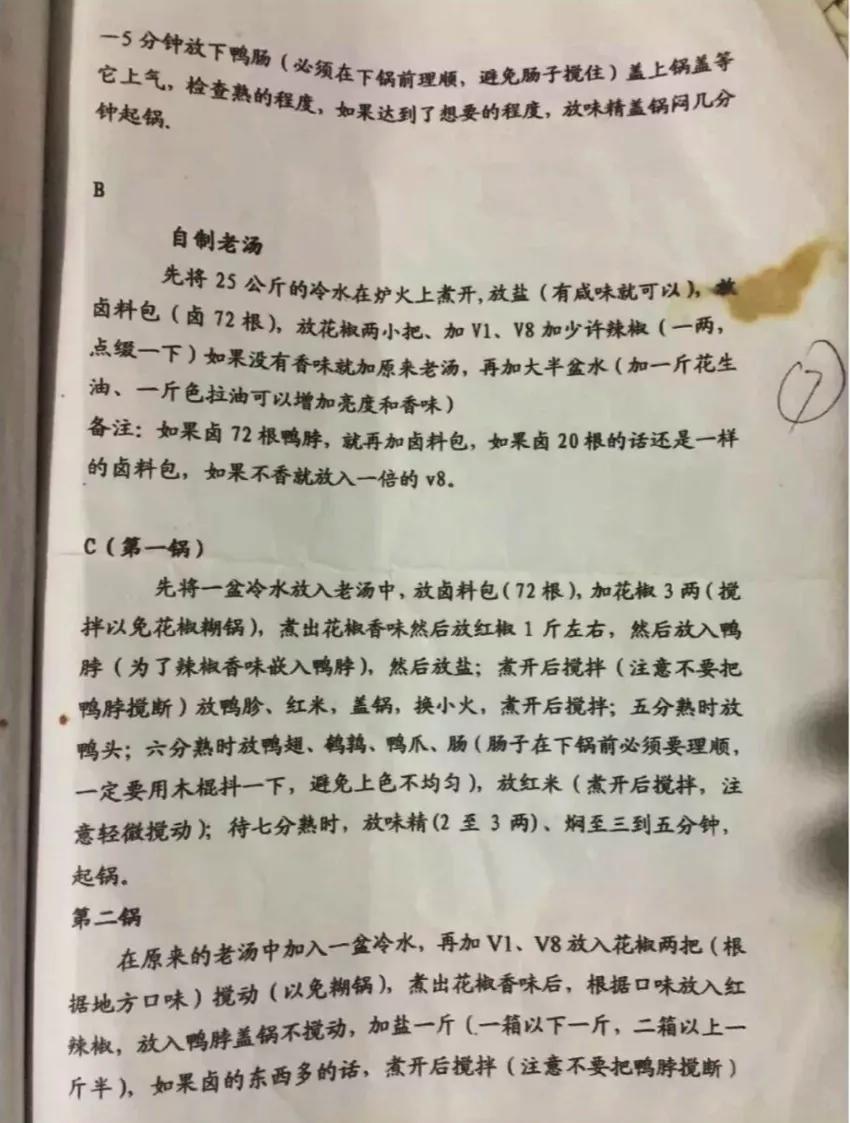 —5分钟放下鸭肠（必须在下锅前理顺，避免肠子搅住）盖上锅盖等
它上气，检查熟的程度，如果达到了想要的程度，放味精盖锅闷几分
钟起锅.
B
自制老汤
先将25公斤的冷水在炉火上煮开,放盐（有咸味就可以），放
卤料包（卤72根），放花椒两小把、加V1、V8加少许辣椒（一两，
点缀一下）如果没有香味就加原来老汤，再加大半盆水（加一斤花生
油、一斤色拉油可以增加亮度和香味）
⑦
备注：如果卤72根鸭脖，就再加卤料包，如果卤20根的话还是一样
的卤料包，如果不香就放入一倍的v8。
C（第一锅）
先将一盆冷水放入老汤中，放卤料包(72根),加花椒3两(搅
拌以免花椒糊锅），煮出花椒香味然后放红椒1斤左右，然后放入鸭
脖（为了辣椒香味嵌入鸭脖），然后放盐；煮开后搅拌（注意不要把
鸭脖搅断）放鸭胗、红米，盖锅，换小火，煮开后搅拌；五分熟时放
鸭头；六分熟时放鸭翅、鹌鹑、鸭爪、肠（肠子在下锅前必须要理顺，
一定要用木棍抖一下，避免上色不均匀），放红米（煮开后搅拌，注
意轻微搅动）；待七分熟时，放味精(2至3两)、焖至三到五分钟，
起锅。
第二锅
在原来的老汤中加入一盆冷水，再加V1、V8放入花椒两把（根
据地方口味）搅动（以免糊锅），煮出花椒香味后，根据口味放入红
辣椒，放入鸭脖盖锅不搅动，加盐一斤（一箱以下一斤，二箱以上一
斤半），如果卤的东西多的话，煮开后搅拌（注意不要把鸭脖搅断）